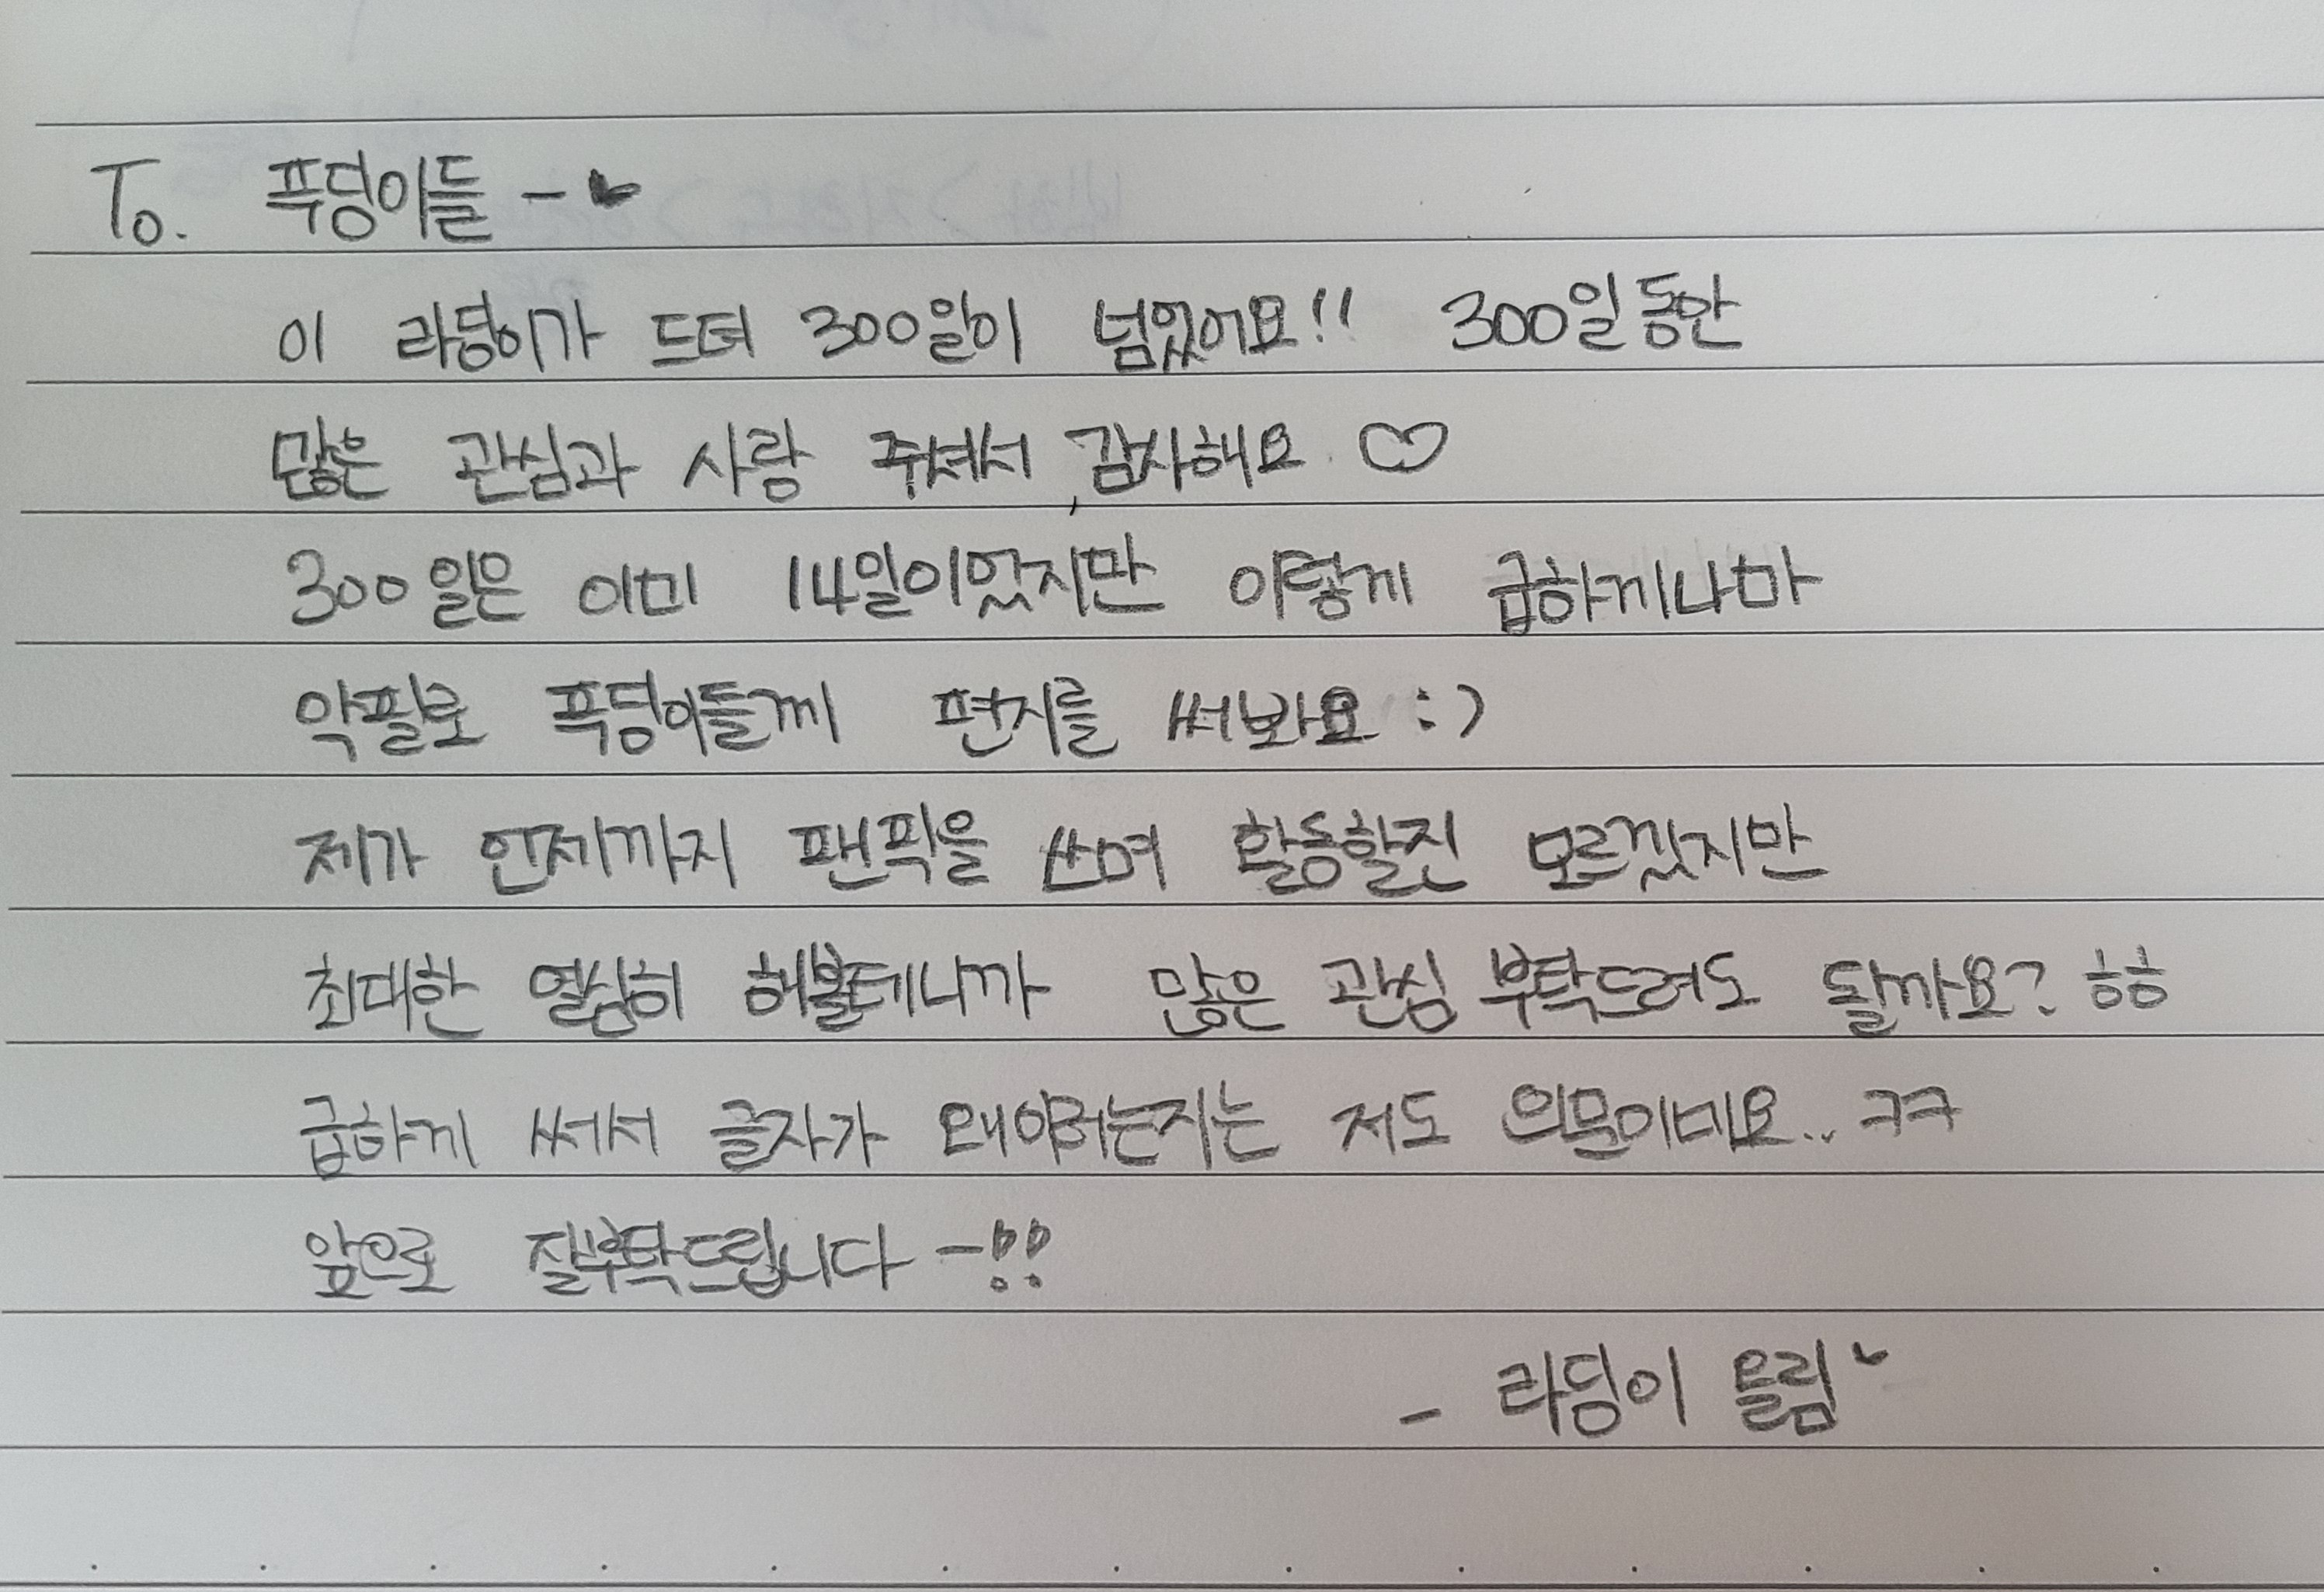 To. 푸딩이들 - ♥
이 라딩이가 드뎌 300일이 넘었어요!! 300일동안
많은 관심과 사랑 주셔서 감사해요 ♡
300일은 이미 14일이었지만 이렇게 급하게나마
악필로 푸딩이들께 편지를 써봐요 :)
제가 언제까지 팬픽을 쓰며 활동할진 모르겠지만
최대한 열심히 해볼테니까 많은 관심 부탁드려도 될까요? ㅎㅎ
급하게 써서 글자가 왜이러는지는 저도 의문이네요.. ㅋㅋ
앞으로 잘부탁드립니다 -!!
- 라딩이 올림 ♥